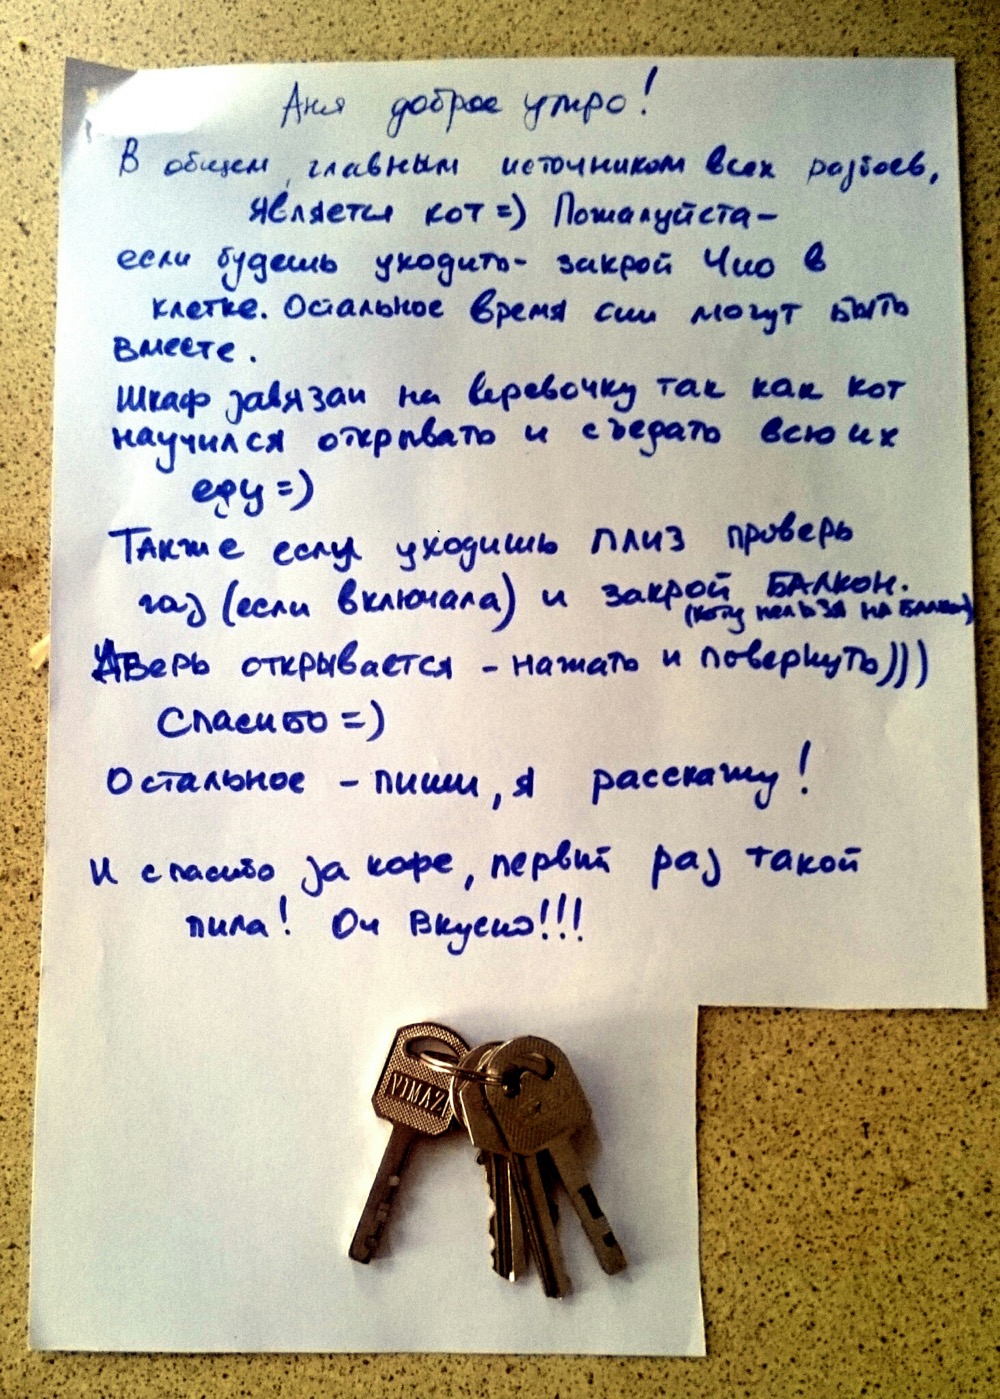 Аня доброе утро!
В общем, главным источником всех разбоев,
является кот =) Пожалуйста-
если будешь уходить- закрой Чио в
клетке. Остальное время они могут быть
вместе.
Шкаф завязан на веревочку так как кот
научился открывать и съедать всю их
еду =)
Также если уходишь плиз проверь
газ (если включала) и закрой БАЛКОН.
(коту нельзя на балкон)
Дверь открывается - нажать и повернуть)))
Спасибо =)
Остальное - пиши, я расскажу!
И спасибо за кофе, первый раз такой
пила! Оч вкусно!!!
VIMAZ